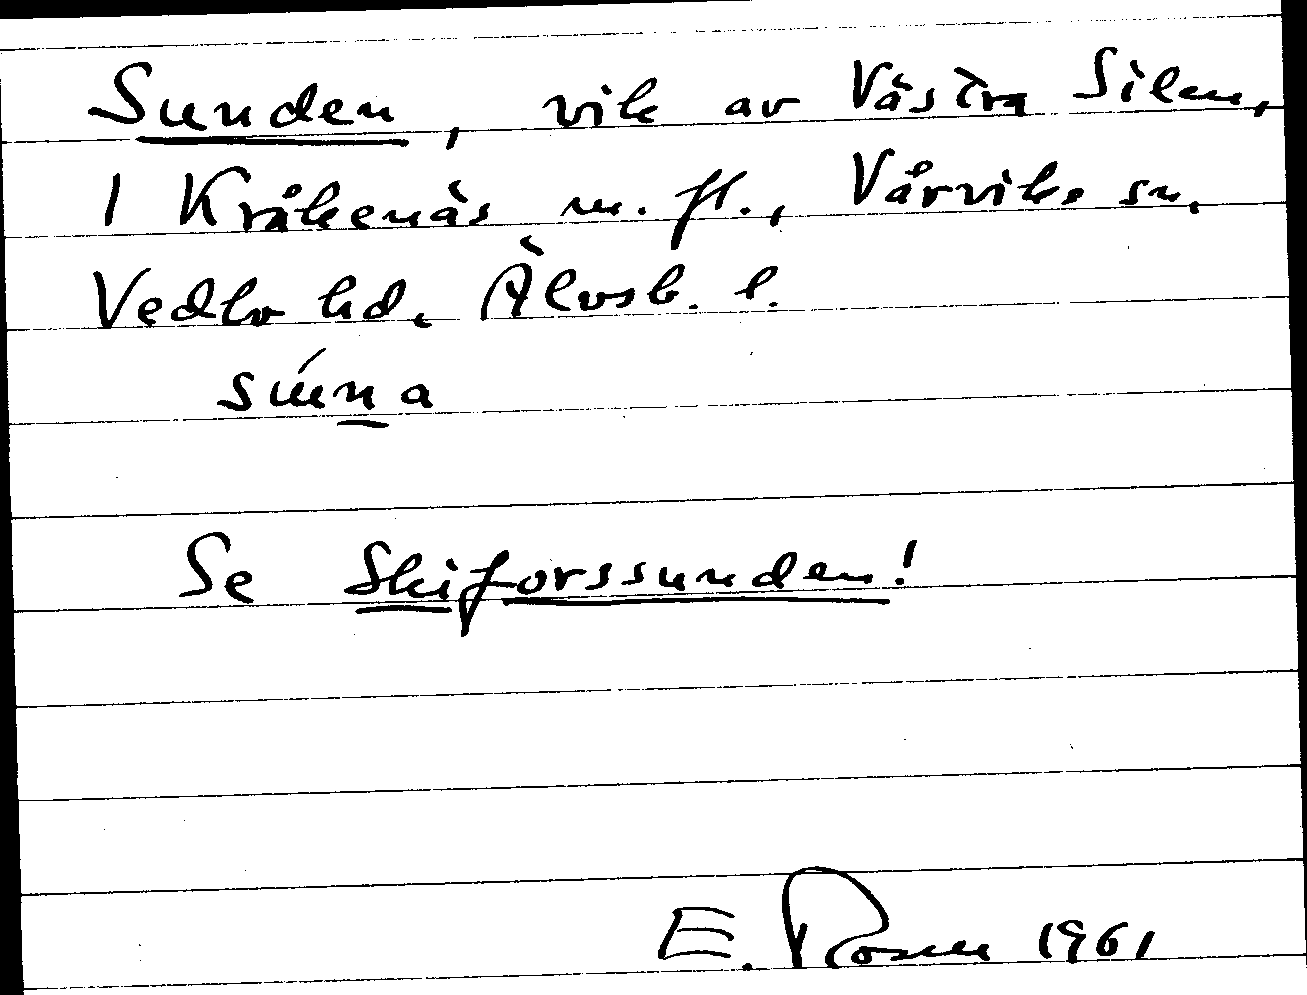 Sunden, vik av Västra Silen,
1 Kråkenäs m. fl., Vårviks sn.
Vedbo hd. Älvsb. l.
súnna
Se Skiforssunden!
E. Rosen 1961